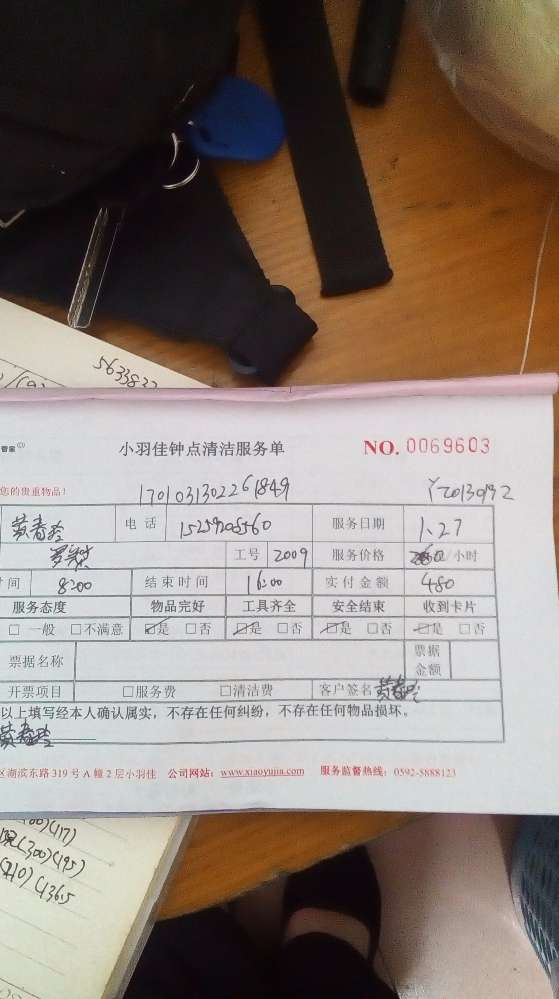 563382
管家
小羽佳钟点清洁服务单
NO. 0069603
您的贵重物品!
1701031302261849
Y2013092
黄春玲 电话 15259208560 服务日期 1.27
工号 2009 服务价格 /小时
时间 8:00 结束时间 16:00 实付金额 480
服务态度 物品完好 工具齐全 安全结束 收到卡片
□一般 □不满意 ☑是 □否 ☑是 □否 ☑是 □否 ☑是 □否
票据名称 票据金额
开票项目 □服务费 □清洁费 客户签名 黄春玲
以上填写经本人确认属实，不存在任何纠纷，不存在任何物品损坏。
黄春玲
区湖滨东路 319 号 A 幢 2 层小羽佳 公司网站：www.xiaoyujia.com 服务监督热线：0592-5888123
(300)(195)
(210)(1365